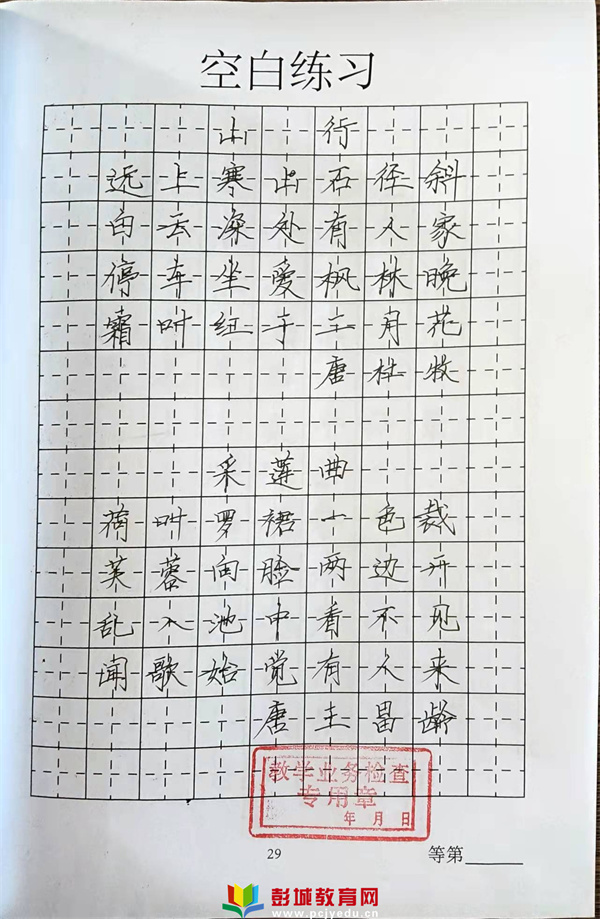 空白练习
山行
远上寒山石径斜
白云深处有人家
停车坐爱枫林晚
霜叶红于二月花
唐杜牧
采莲曲
荷叶罗裙一色裁
芙蓉向脸两边开
乱入池中看不见
闻歌始觉有人来
唐王昌龄
教学业务检查
专用章
年月日
29
等第
彭城教育网
www.pcjyedu.cn